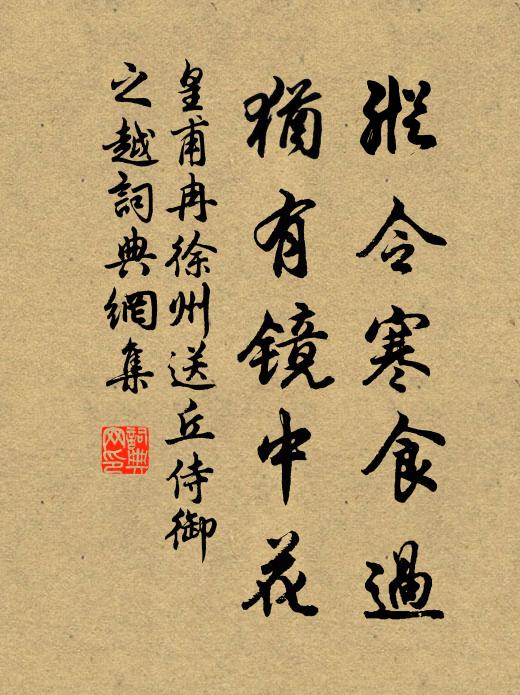 縱令寒食過
猶有镜中花
皇甫冉徐州送丘侍御
之越詞典網集
詞典网印